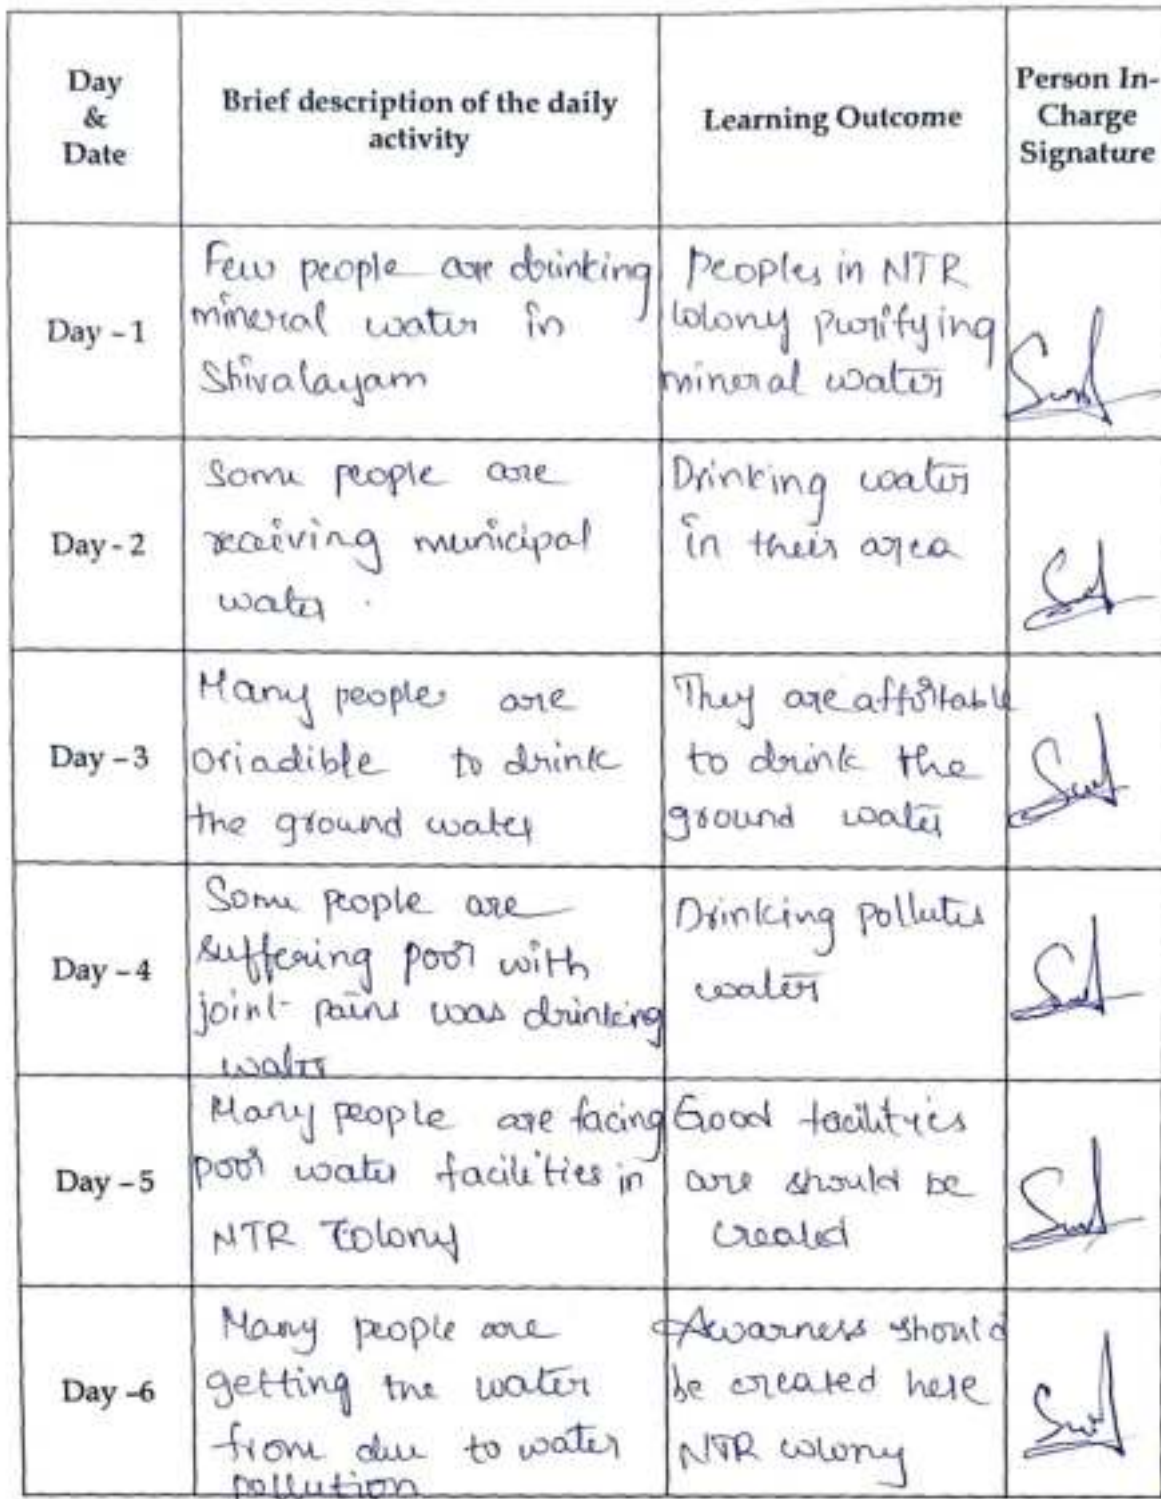 Day
&
Date
Brief description of the daily
activity
Learning Outcome
Person In-
Charge
Signature
Day - 1
Few people are drinking
mineral water in
Shivalayam
Peoples in NTR
colony purifying
mineral water
Day - 2
Some people are
receiving municipal
water.
Drinking water
in their area
Day - 3
Many people are
oriadible to drink
the ground water
They are affortable
to drink the
ground water
Day - 4
Some people are
suffering poor with
joint pains was drinking
water
Drinking pollutes
water
Day - 5
Many people are facing
poor water facilities in
NTR Colony
Good facilities
are should be
created
Day -6
Many people are
getting the water
from due to water
pollution
Awarness should
be created here
NTR colony